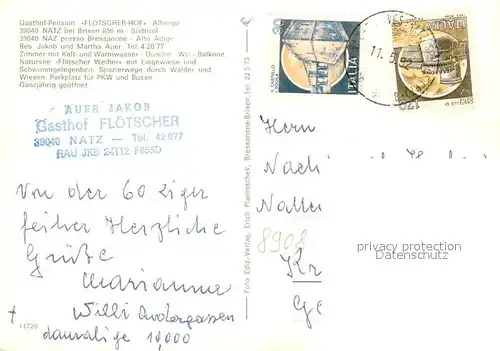 Gasthof-Pension «FLÖTSCHER-HOF» Albergo
39040 NATZ bei Brixen 856 m - Südtirol
39040 NAZ presso Bressanone - Alto Adige
Bes. Jakob und Martha Auer Tel. 4 20 77
Zimmer mit Kalt- und Warmwasser - Dusche - Wc - Balkone
Natursee «Flötscher Weiher» mit Liegewiese und
Schwimmgelegenheit. Spazierwege durch Wälder und
Wiesen. Parkplatz für PKW und Busse
Ganzjährig geöffnet
AUER JAKOB
Gasthof FLÖTSCHER
39040 NATZ — Tel. 42 077
RAU JKB 24T12 F855D
Von der 60 ziger
feiher Herzliche
Grüße
Marianne
Willi
damalige 10,000
11728
Foto Ediz.-Verlag, Erich Pfannschek, Bressanone-Brixen Tel. 22 5 73
ITALIA
ITALIA
170
11.5.
Herrn
Nach
8908
Kr
Ge
privacy protection
Datenschutz